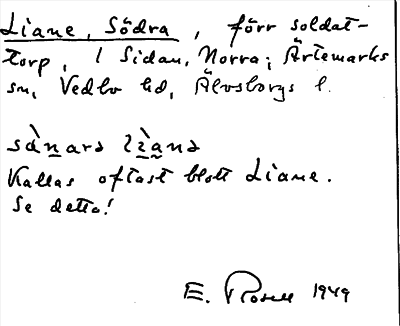 Liane, Södra, förr soldat-
torp, l Sidan, Norra; Ärtemarks
sn, Vedbo hd, Älvsborgs l.
sànara lìana
Kallas oftast blott Liane.
Se detta!
E. Rosell 1949